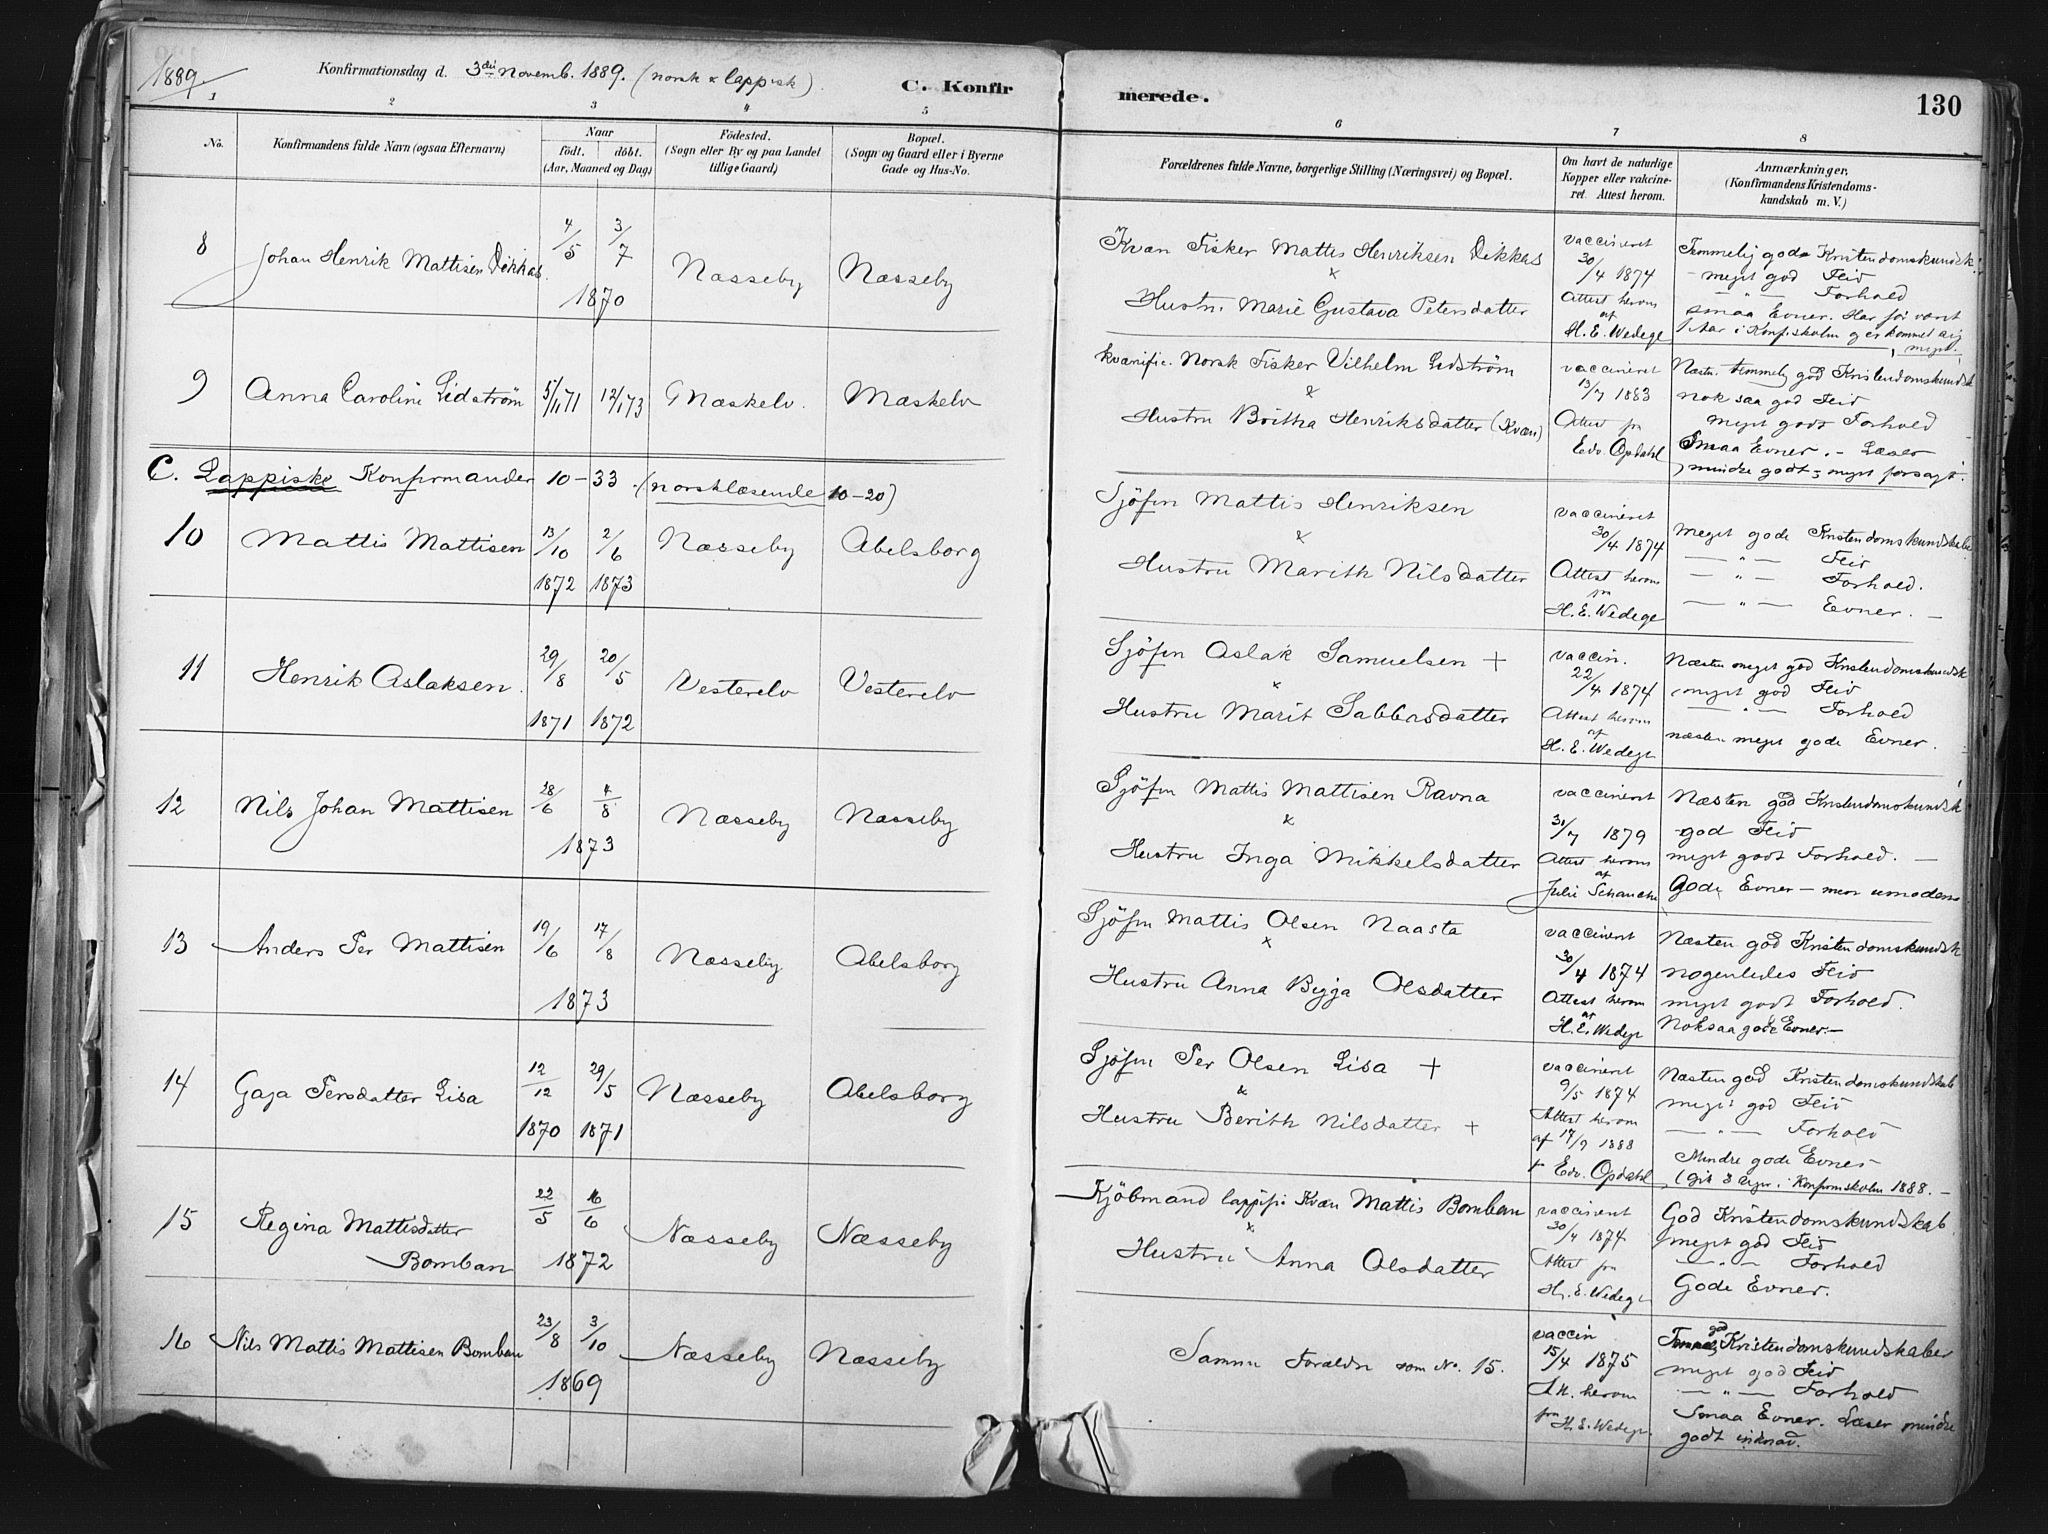 1889.
Konfirmationsdag d. 3die Novemb. 1889. (norsk & lappisk)
C. Konfirmerede.
130
1 2 3 4 5 6 7 8
No.
Konfirmandens fulde Navn (ogsaa Efternavn)
Naar
födt. döbt.
(Aar, Maaned og Dag)
Födested.
(Sogn eller By og paa Landet
tillige Gaard)
Bopæl.
(Sogn og Gaard eller i Byerne
Gade og Hus-No.
Forældrenes fulde Navne, borgerlige Stilling (Næringsvei) og Bopæl.
Om havt de naturlige
Kopper eller vakcine-
ret. Attest herom.
Anmærkninger,
(Konfirmandens Kristendoms-
kundskab m. V.)
8
Johan Henrik Mattisen Dikkas.
4/5 3/7
1870
Næsseby
Næsseby
Kvæn Fisker Mattis Henriksen Dikkas
&
Hustru Marie Gustava Petersdatter
vaccineret
30/4 1874
Attest herom
af
H. E. Wedege
Temmelig gode Kristendomskundsk.
meget god Flid
— " — Forhold
smaa Evner. Har før været
1 Aar i Konf.skolen
9
Anna Caroline Lidström
5/11 71 12/1 73
Mæskelv.
Mæskelv
kvænfin. Norsk Fisker Vilhelm Lidström
&
Hustru Britha Henriksdatter (Kvæn)
vaccineret
13/7 1883
Attest fra
Edv. Opdahl
Næsten temmelig god Kristendomskundsk
nok saa god Flid
meget godt Forhold
Smaa Evner. - Læser
mindre godt; meget forsagt.
C. Lappiske Konfirmander 10-33. (norsklæsende 10-20)
10
Mattis Mattisen
13/10 2/6
1872 1873
Næsseby
Abelsborg
Sjöfin Mattis Henriksen
&
Hustru Marith Nilsdatter
vaccineret
30/4 1874
Attest herom
fra
H. E. Wedege
Meget gode Kristendomskundskaber
— " — Flid
— " — Forhold.
— " — Evner. —
11
Henrik Aslaksen.
29/8 20/5
1871 1872
Vesterelv
Vesterelv
Sjöfin Aslak Samuelsen +
&
Hustru Marit Sabbasdatter
vaccin.
22/4 1874
Attest herom
af
H. E. Wedege
Næsten meget god Kristendomskundsk
meget god Flid
— " — Forhold
næsten meget gode Evner.
12
Nils Johan Mattisen
28/6 4/8
1873
Næsseby
Næsseby
Sjöfin Mattis Mattisen Ravna
&
Hustru Inga Mikkelsdatter
vaccineret
31/7 1879
Attest herom
af
Julie Schanche
Næsten god Kristendomskundsk
god Flid
meget godt Forhold. —
Gode Evner — men umodens
13
Anders Per Mattisen
19/6 17/8
1873
Næsseby
Abelsborg
Sjöfin Mattis Olsen Naasta
&
Hustru Anna Bigga Olsdatter
vaccineret
30/4 1874
Attest herom
af
H. E. Wedege
Næsten god Kristendomskundsk
nogenledes Flid
meget godt Forhold.
Noksaa gode Evner. —
14
Gaja Persdatter Lisa
12/12 29/5
1870 1871
Næsseby
Abelsborg
Sjöfin Per Olsen Lisa +
&
Hustru Berith Nilsdatter +
vaccineret
9/5 1874
Attest herom
af 17/9 1888
f Edv. Opdahl
Næsten god Kristendomskundskab
meget god Flid
— " — Forhold
Mindre gode Evner
(Gik 3 Uger i Konfirmskolen 1888. —
15
Regina Mattisdatter
Bomban
22/5 16/6
1872
Næsseby
Næsseby
Kjöbmand lappisk Kvæn Mattis Bomban
&
Hustru Anna Olsdatter
vaccineret
30/4 1874
Attest fra
H. E. Wedege
God Kristendomskundskab
meget god Flid
— " — Forhold
Gode Evner.
16
Nils Mattis Mattisen Bomban
23/8 3/10
1869
Næsseby
Næsseby
Samme Forældre som No. 15.
vaccin
15/4 1875
Att. herom
fra H. E. Wedege.
god
Kristendomskundskaber
meget god Flid
— " — Forhold
Smaa Evner. Læser mindre
godt